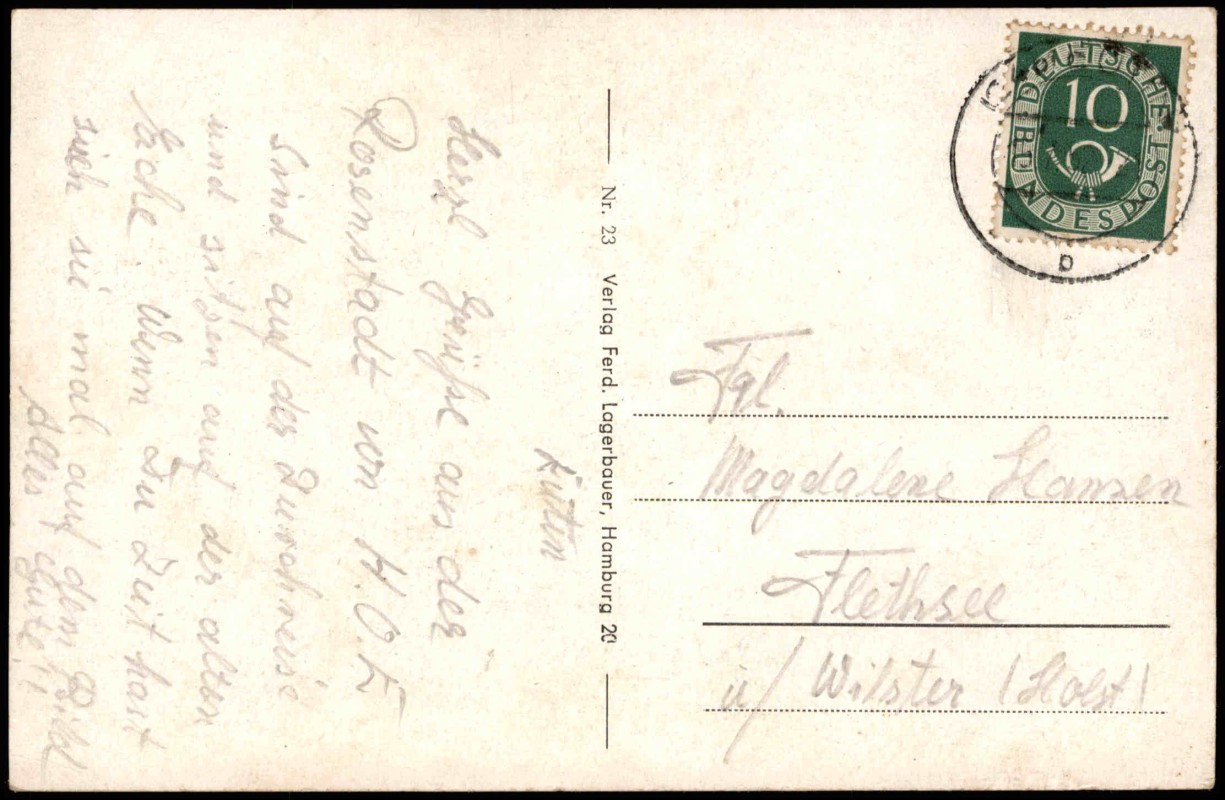 Eutin
Herzl Grüße aus der
Rosenstadt von H.O.E
Sind auf der Durchreise
und sitzen auf der alten
Eiche Wenn Du Zeit hast
sieh sie mal auf dem Bild
Alles Gute!!
Nr. 23 Verlag Ferd. Lagerbauer, Hamburg 20
DEUTSCHE BUNDESPOST
10
b
Frl.
Magdalene Hansen
Flethsee
ü/ Wilster (Holst)